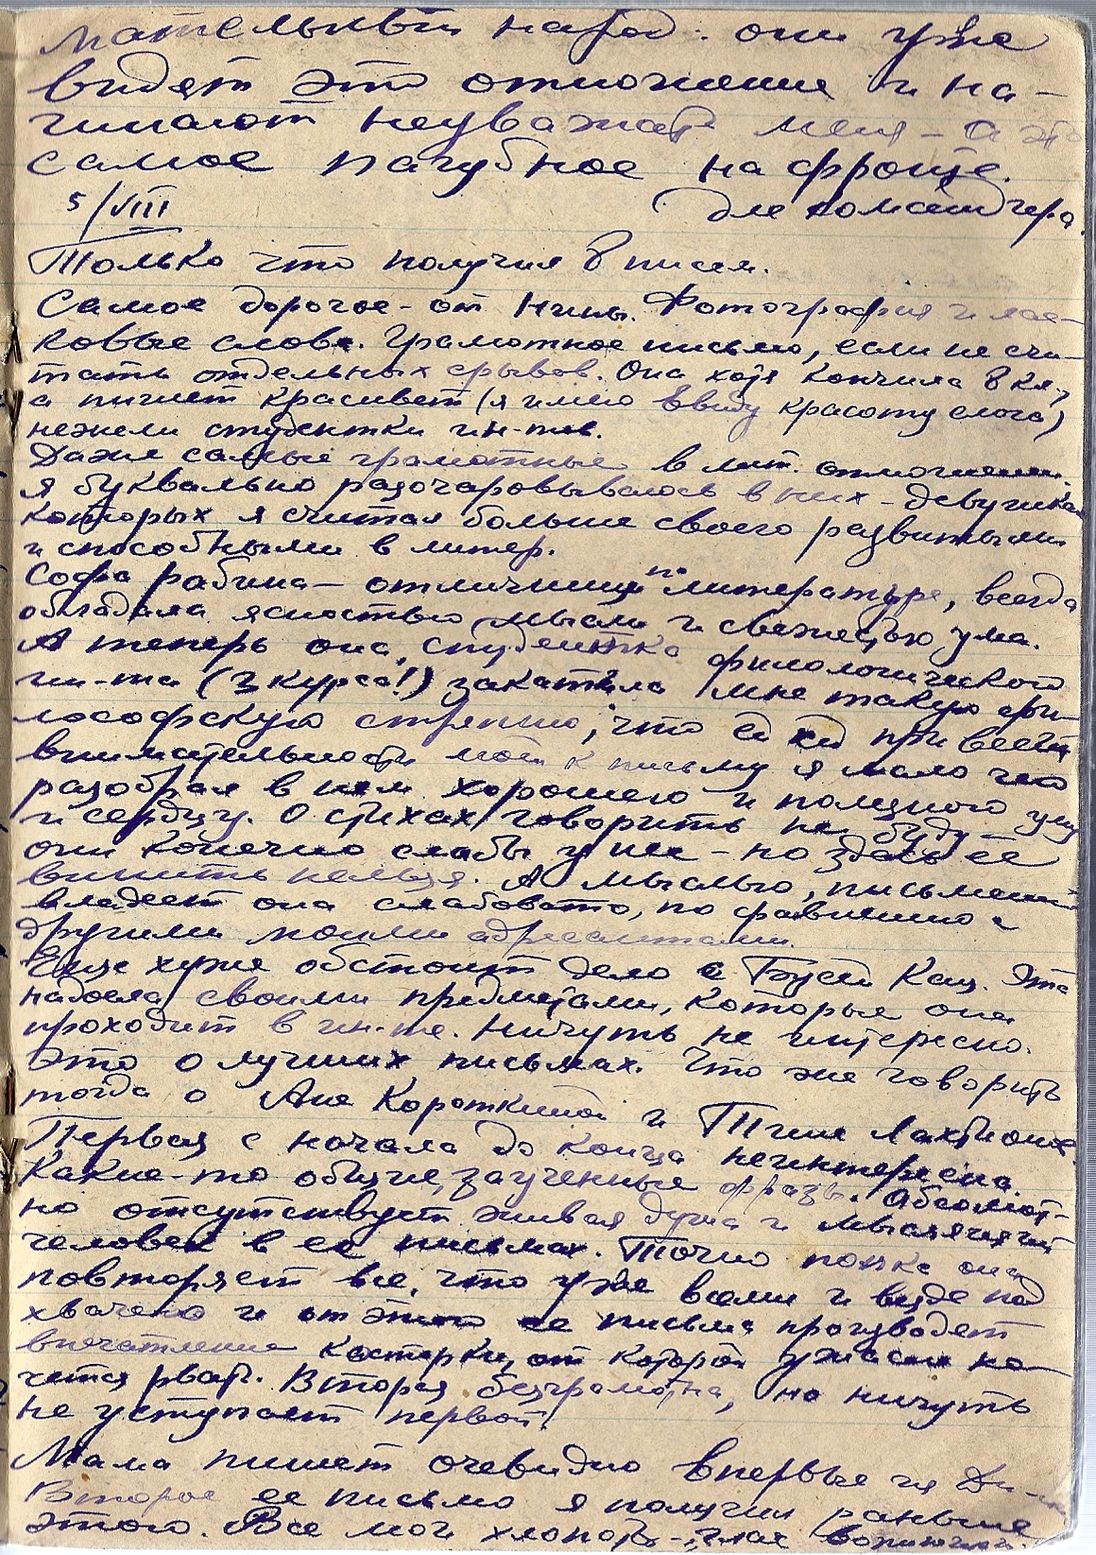 мательный народ: они уже
видят это отношение и на-
чинают неуважать меня - а это
самое пагубное на фронте.
для командира.
5/VIII
Только что получил 8 писем.
Самое дорогое - от Нины. Фотография и лас-
ковые слова. Грамотное письмо, если не счи-
тать отдельных срывов. Она хотя кончила 8 кл.,
а пишет красивей (я имею ввиду красоту слога)
нежели студентки ин-тов.
Даже самые грамотные в лит. отношении.
я буквально разочаровывалось в них - девушках
которых я считал больше своего развитыми
и способными в литер.
Софа Рабина - отличница по литературе, всегда
обладала ясностью мысли и свежестью ума.
А теперь она, студентка филологического
ин-та (3 курса!) закатила мне такую фи-
лософскую стряпню, что при всей
внимательности моей к письму я мало что
разобрал в нем хорошего и полезного уму
и сердцу. О стихах говорить не буду -
они конечно слабы у нее - но здесь её
винить нельзя. А мыслью, письменно
владеет она слабовато, по сравнению с
другими моими адресатами.
Еще хуже обстоит дело с Бусей Кац. Эта
надоела своими предметами, которые она
проходит в ин-те. Ничуть не интересно.
Это о лучших письмах. Что же говорить
тогда о Ане Короткиной и Тине Лахтионо
Первая с начала до конца неинтересна.
Какие-то общие, заученные фразы. Абсолют-
но отсутствует живая душа и мыслящий
человек в ее письмах. Точно она
повторяет все, что уже всеми и везде под
хвачено и от этого ее письма производят
впечатление касторки, от которой ужасно хо-
чется рвать. Вторая безграмотна, но ничуть
не уступает первой.
Мама пишет очевидно впервые из
Второе ее письмо я получил раньше
этого. Все мои хлопоты - глас вопиющего.